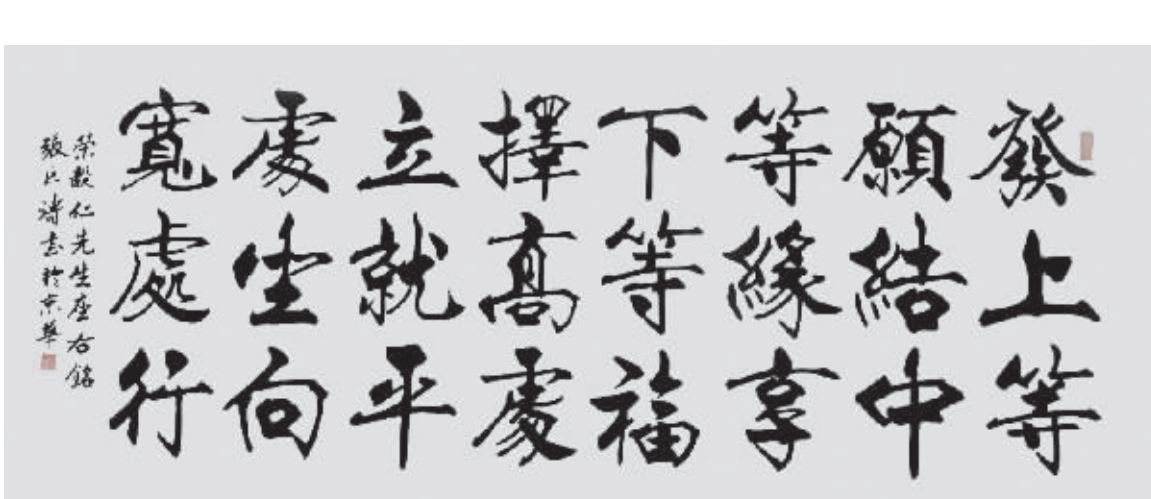 發上等
願結中
等緣享
下等福
擇高處
立就平
處坐向
寬處行
榮毅仁先生座右銘
張兵濤書於京華